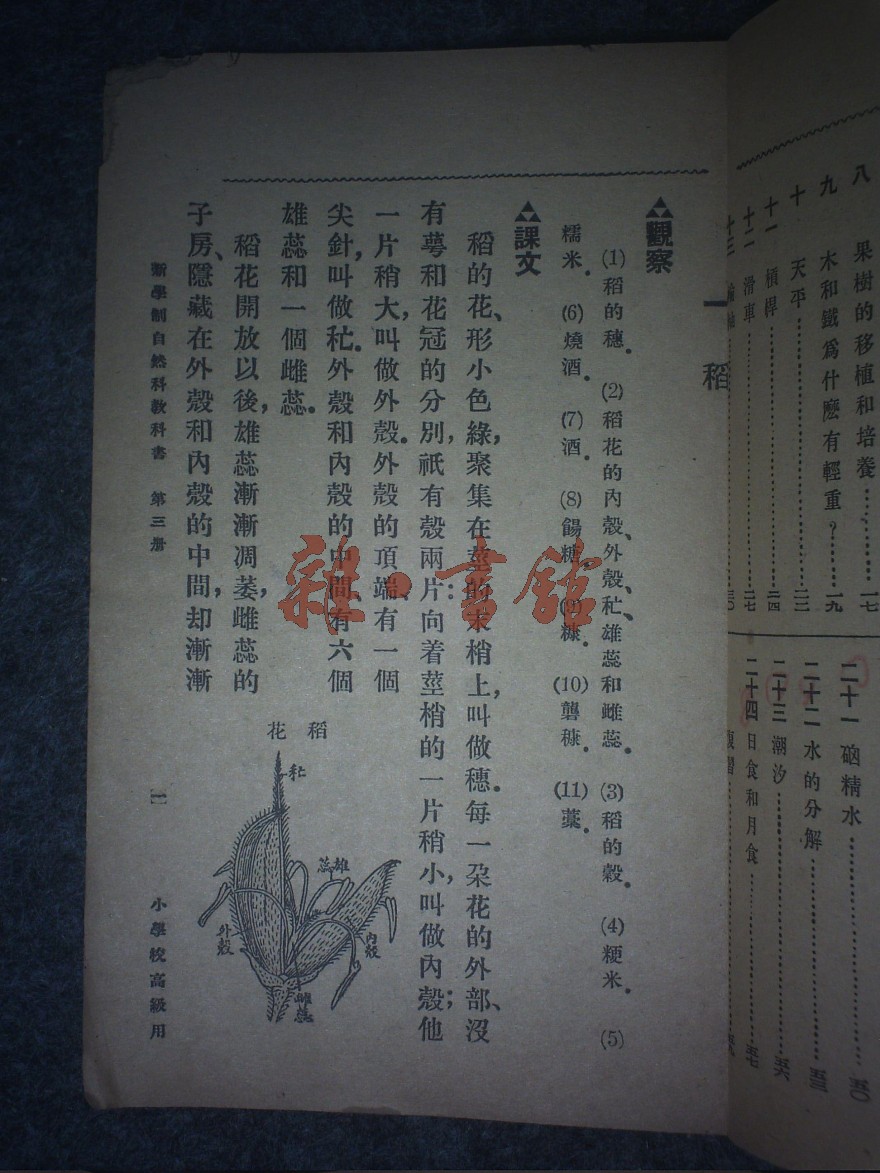 八　果樹的移植和培養……一七
九　木和鐵爲什麽有輕重？……一九
十　天平……二二
十一　槓桿……二四
十二　滑車……二七
十三
二十一　硇精水……五〇
二十二　水的分解……五三
二十三　潮汐……五六
二十四　日食和月食……五七
復習
一　稻
觀察
(1)稻的穗。(2)稻花的內殼、外殼、秕、雄蕊和雌蕊。(3)稻的穀。(4)粳米。(5)
糯米。(6)燒酒。(7)酒。(8)餳糖。(9)糠。(10)礱糠。(11)藁。
課文
稻的花、形小色綠，聚集在莖的末梢上，叫做穗。每一朶花的外部、沒
有萼和花冠的分別，祇有殼兩片：向着莖梢的一片稍小，叫做內殼；他
一片稍大，叫做外殼。外殼的頂端、有一個
尖針，叫做秕。外殼和內殼的中間、有六個
雄蕊和一個雌蕊。
稻花開放以後，雄蕊漸漸凋萎，雌蕊的
子房、隱藏在外殼和內殼的中間，却漸漸
稻花
秕
雄蕊
內殼
外殼
雌蕊
新學制自然科教科書　第三册
一
小學校高級用
雜·書館